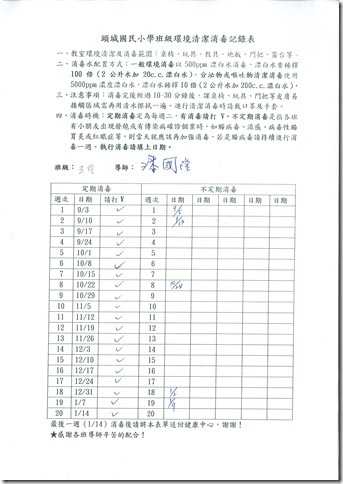 頭城國民小學班級環境清潔消毒記錄表
一、教室環境清潔及消毒範圍：桌椅、玩具、教具、地板、門把、窗台等。
二、消毒水配置方式：一般環境消毒以 500ppm 漂白水消毒，漂白水要稀釋
100 倍 (2 公升水加 20c.c.漂白水)。分泌物或嘔吐物清潔消毒使用
5000ppm 濃度漂白水，漂白水稀釋 10 倍(2 公升水加 200c.c.漂白水)。
三、注意事項：消毒完後經過 10-30 分鐘後，課桌椅、玩具、門把等皮膚易
接觸區域需再用清水擦拭一遍。進行清潔消毒時請戴口罩及手套。
四、消毒時機：定期消毒定為每週二，有消毒請打 V。不定期消毒是指各班
有小朋友出現發燒或有傳染病確診個案時，如腸病毒、流感、病毒性腸
胃炎或紅眼症等，則當天就應該再加強消毒，若是腸病毒請持續進行消
毒一週。執行消毒請填上日期。
班級： 導師：
定期消毒 不定期消毒
週次 日期 請打 V 週次 日期 日期 日期 日期 日期
1 9/3 ✓ 1
2 9/10 ✓ 2
3 9/17 ✓ 3
4 9/24 ✓ 4
5 10/1 ✓ 5
6 10/8 ✓ 6
7 10/15 ✓ 7
8 10/22 ✓ 8
9 10/29 ✓ 9
10 11/5 ✓ 10
11 11/12 ✓ 11
12 11/19 ✓ 12
13 11/26 ✓ 13
14 12/3 ✓ 14
15 12/10 ✓ 15
16 12/17 ✓ 16
17 12/24 ✓ 17
18 12/31 ✓ 18
19 1/7 ✓ 19
20 1/14 ✓ 20
最後一週 (1/14) 消毒後請將本表單送回健康中心，謝謝！
★感謝各班導師辛苦的配合！